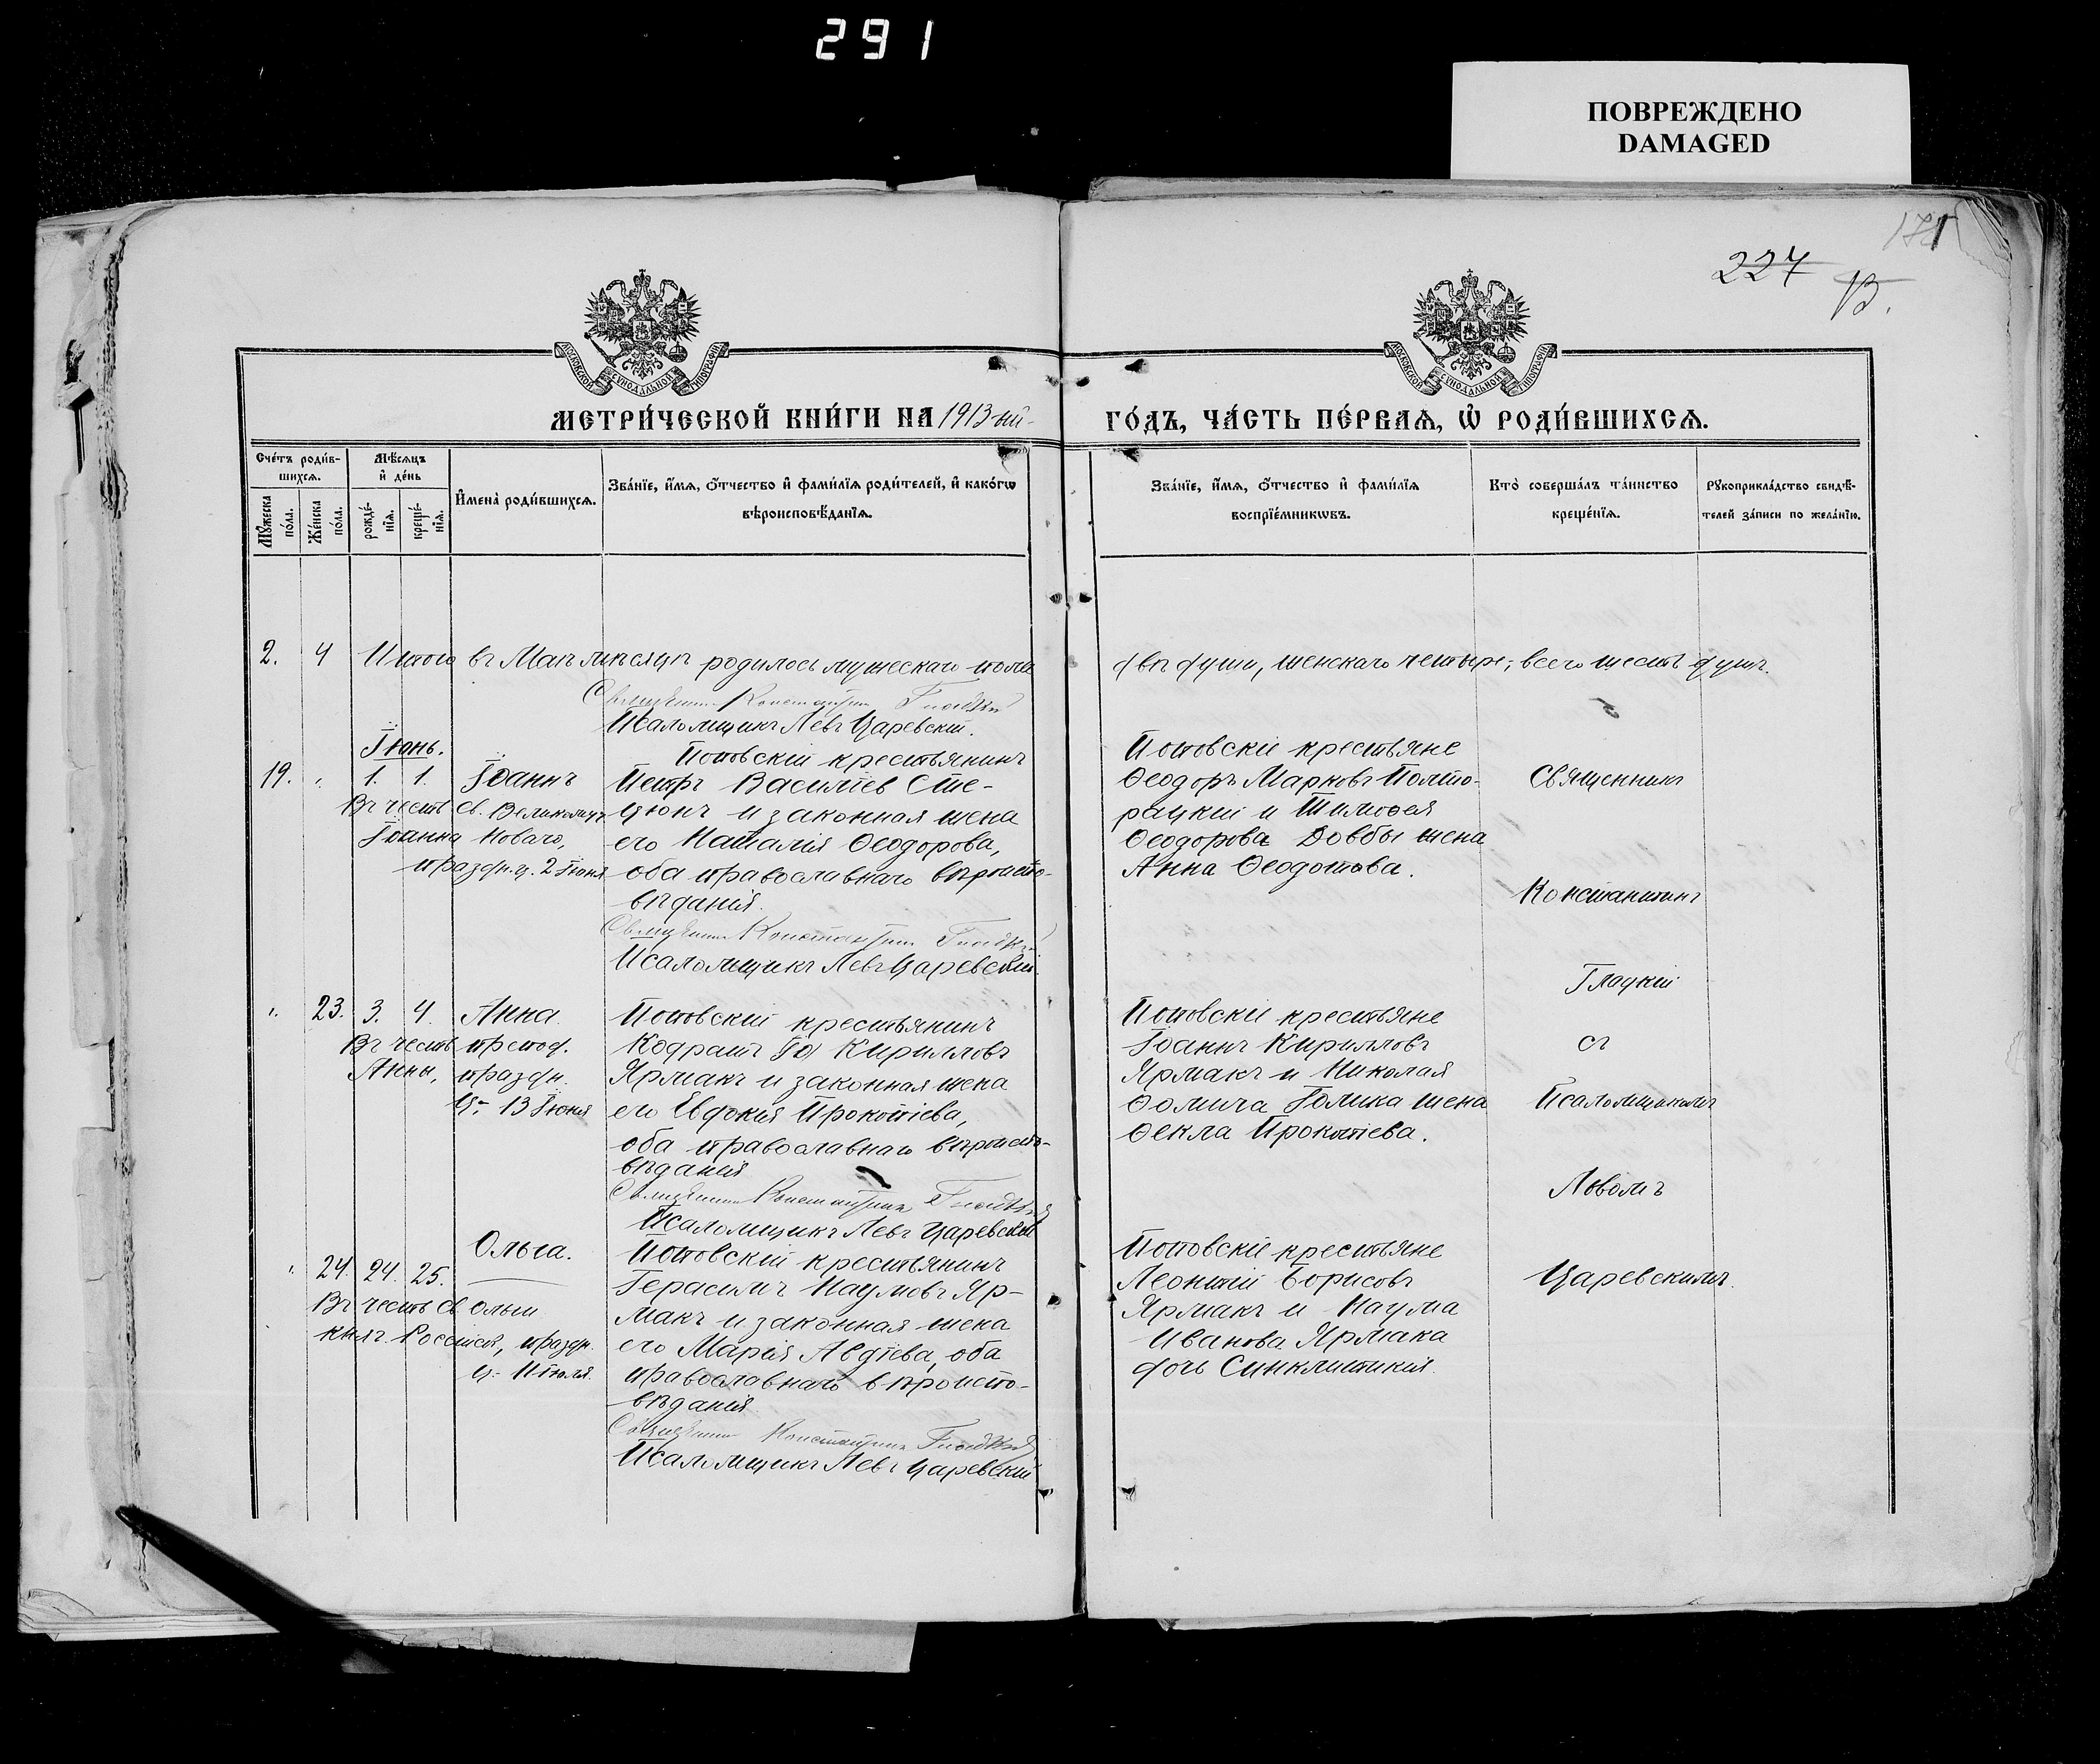 291
ПОВРЕЖДЕНО
DAMAGED
171
227
В.
МОСКОВСКОЙ СѴНОДАЛЬНОЙ ТИПОГРАФІИ
МОСКОВСКОЙ СѴНОДАЛЬНОЙ ТИПОГРАФІИ
МЕТРИ́ЧЕСКОЙ КНИ́ГИ НА 1913-ый
ГО́ДЪ, ЧА́СТЬ ПЕ́РВАѦ, Ѡ҆ РОДИ́ВШИХСѦ.
Сче́тъ роди́в-
шихсѧ.
Мꙋ́жеска по́ла.
Же́нска по́ла.
Мѣ́сѧцъ
и҆ де́нь
рожде́-
нїѧ.
креще́-
нїѧ.
И҆мена̀ роди́вшихсѧ.
Зва́нїе, и҆́мѧ, ѻ҆́тчество и҆ фами́лїѧ роди́телей, и҆ како́гѡ
вѣроисповѣ́данїѧ.
Зва́нїе, и҆́мѧ, ѻ҆́тчество и҆ фами́лїѧ
воспрїе́мникѡвъ.
Кто̀ соверша́лъ та́инство
креще́нїѧ.
Рꙋкоприкла́дство свидѣ́-
телей за́писи по жела́нїю.
2. 4 Итого въ Маѣ мѣсяцѣ родилось мужескаго пола
двѣ души, женскаго четыре; всего шесть душъ.
Священникъ Константинъ Гладкій
Псаломщикъ Левъ Царевскій.
Іюнь.
19. 1. 1. Іоаннъ
Въ честь Св. Великомуч.
Іоанна Новаго,
праздн. ц. 2 Іюня
Поповскій крестьянинъ
Петръ Василіев Сте-
цюнъ и законная жена
его Наталія Ѳеодорова,
оба православнаго вѣроиспо-
вѣданія.
Священникъ Константинъ Гладкій
Псаломщикъ Левъ Царевскій
Поповскіе крестьяне
Ѳеодоръ Марковъ Полто-
рацкій и Тимоѳея
Ѳеодорова Довбы жена
Анна Ѳеодотова.
Священникъ
Константинъ
Гладкій
23. 3. 4. Анна.
Въ честь препод.
Анны, праздн.
ц. 13 Іюня
Поповскій крестьянинъ
Кодратъ Кирилловъ
Ярмакъ и законная жена
его Евдокія Прокопіева,
оба православнаго вѣроиспо-
вѣданія
Священникъ Константинъ Гладкій
Псаломщикъ Левъ Царевскій
Поповскіе крестьяне
Іоаннъ Кирилловъ
Ярмакъ и Николая
Ѳомича Голика жена
Ѳекла Прокопіева.
съ
Псаломщикомъ
Львомъ
Царевскимъ.
24. 24. 25. Ольга.
Въ честь Св. Ольги
княг. Россійск., праздн.
ц. 11 Іюля.
Поповскій крестьянинъ
Герасимъ Наумовъ Яр-
макъ и законная жена
его Марія Авдіева, оба
православнаго вѣроиспо-
вѣданія
Священникъ Константинъ Гладкій
Псаломщикъ Левъ Царевскій
Поповскіе крестьяне
Леонтій Борисовъ
Ярмакъ и Наума
Иванова Ярмака
дочь Синклитикія.